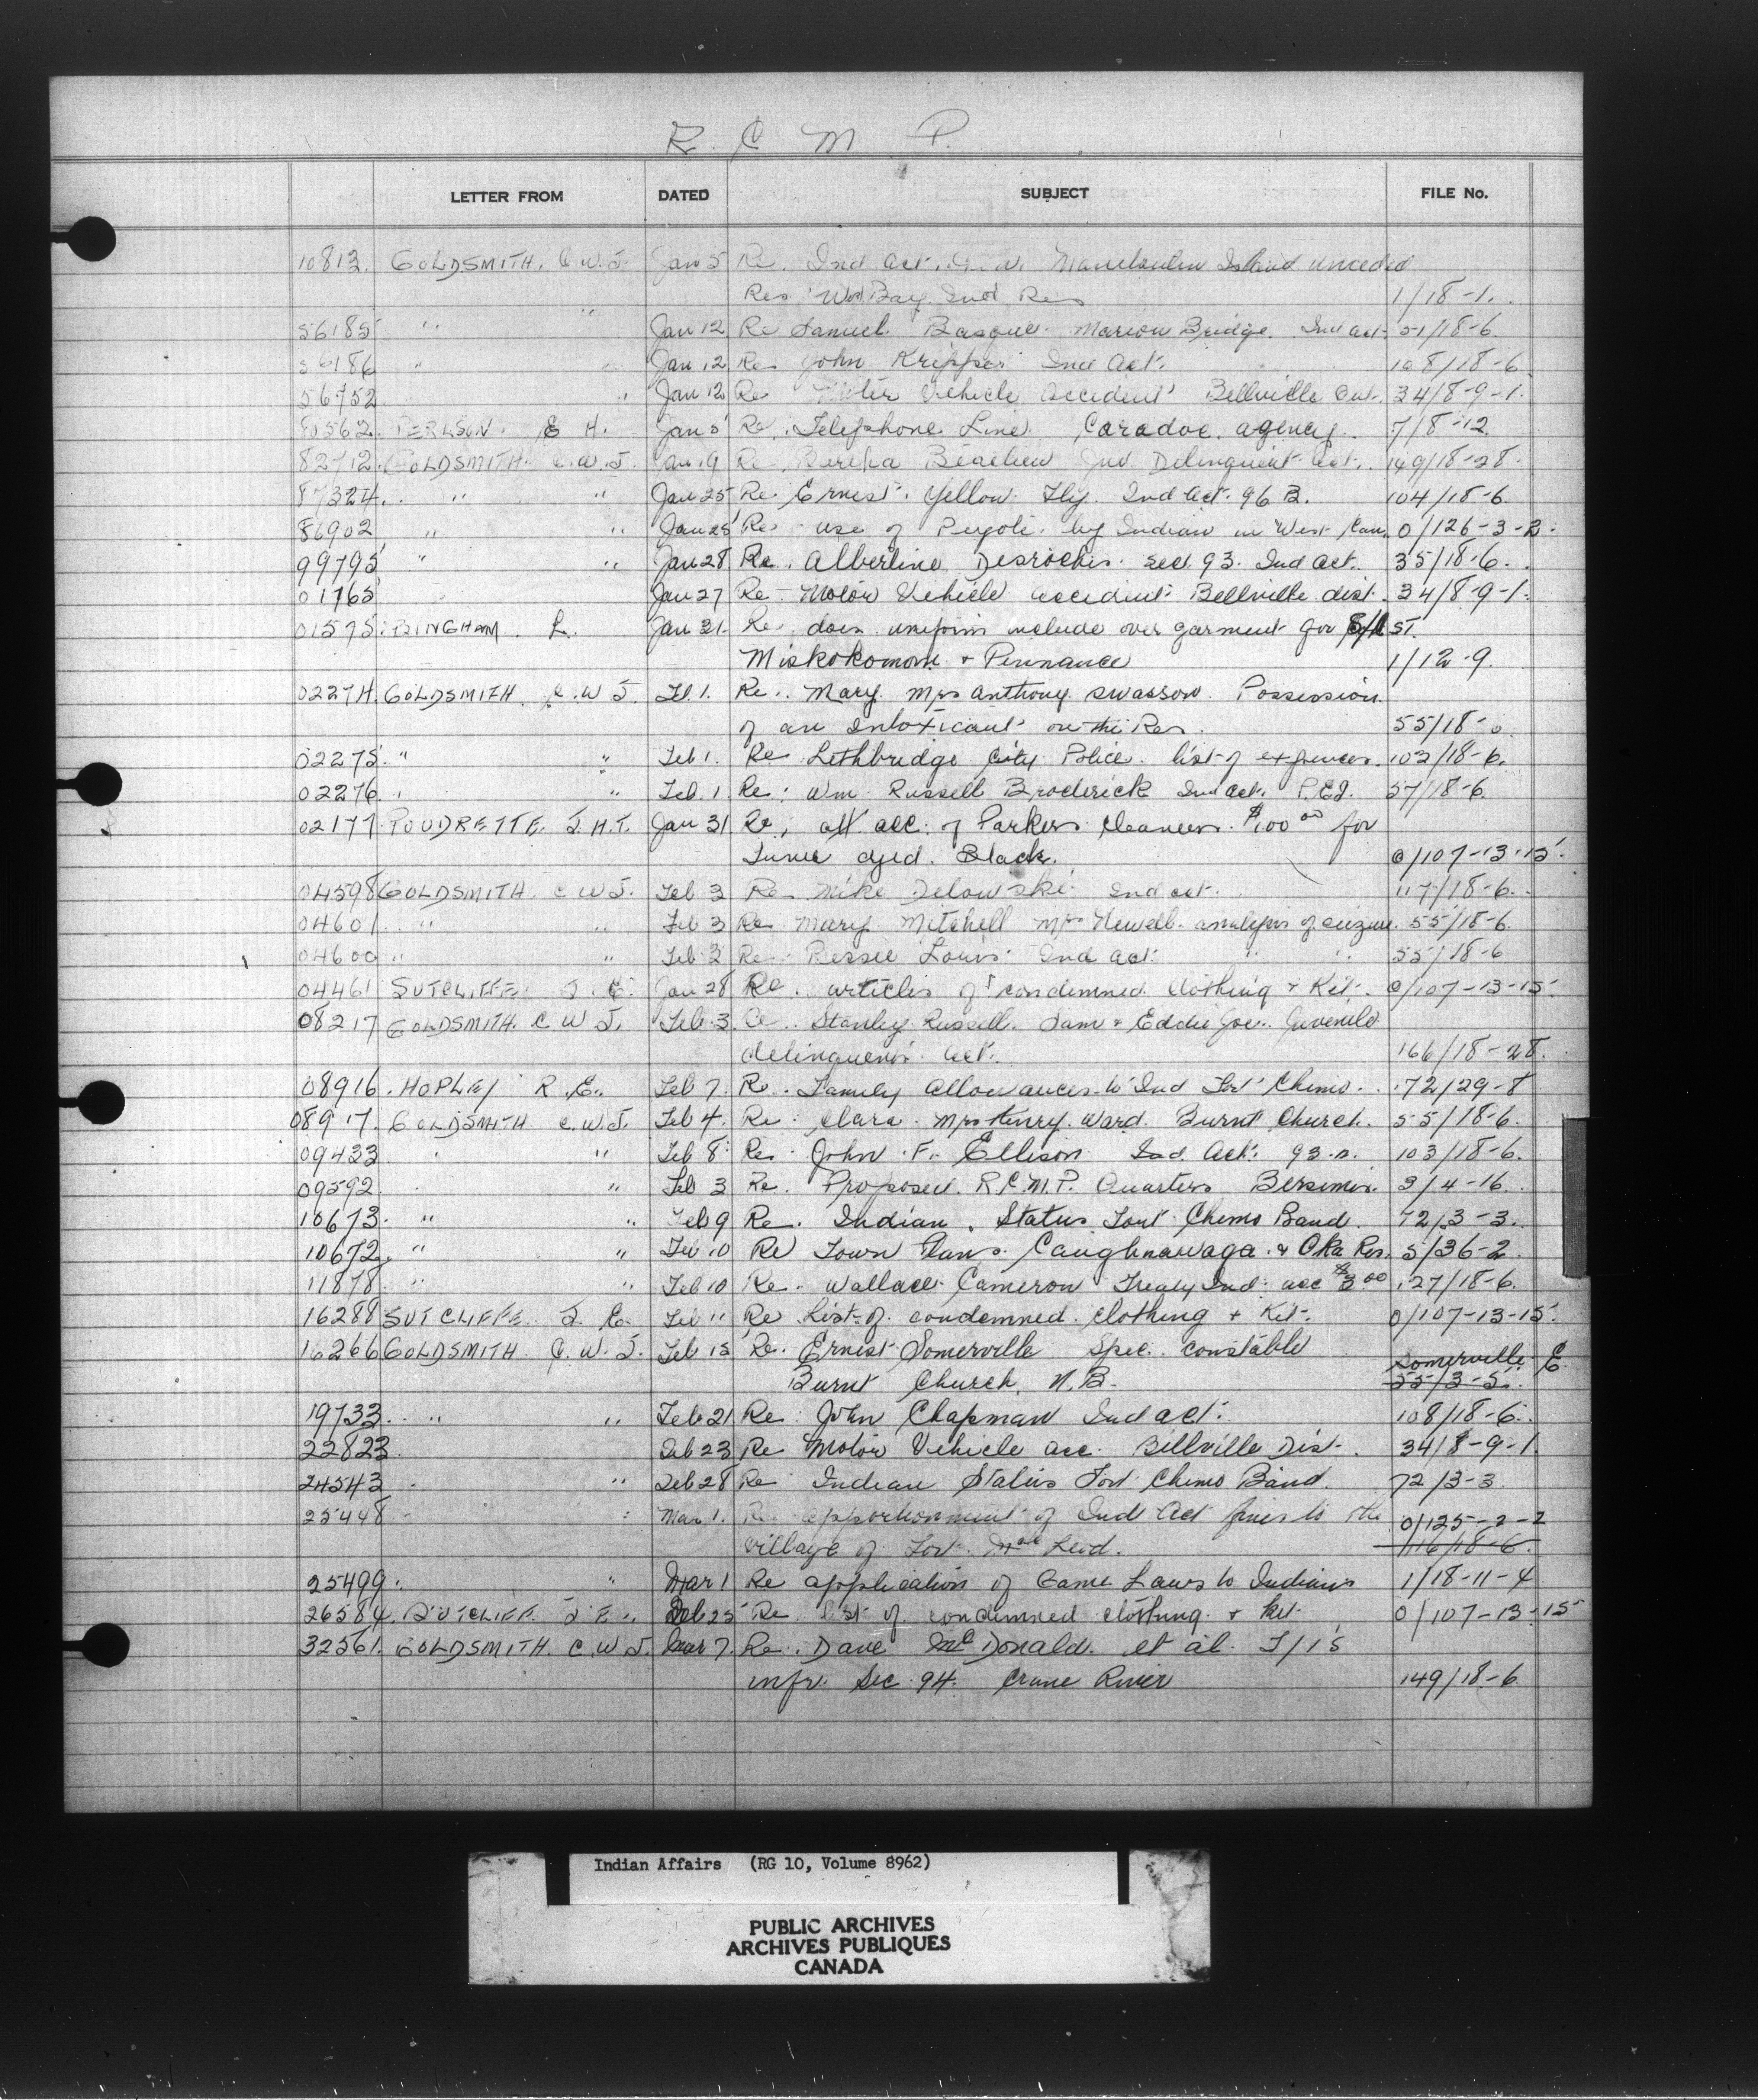 R. C. M. P.
LETTER FROM DATED SUBJECT FILE No.
10813. GOLDSMITH. C.W.J. Jan 5 Re. Ind Act. Manitoulin Island unceded
Res. Ind Res 1/18-1.
56185 " " Jan 12 Re Samuel Basque. Marion Bridge. Ind act. 51/18-6.
56186 " " Jan 12 Re John Ind Act. 108/18-6
56752 " Jan 12 Re Vehicle accident Bellville Ont. 34/8-9-1.
80562. PERLSON. E H. Jan 5 Re. Telephone Line Caradoc agency. 7/8-12.
82712. GOLDSMITH. C.W.J. Jan 19 Re. Ind Delinquent act. 149/18-28.
87324. " " Jan 25 Re. Ernest. Yellow Fly. Ind act. 96 B. 104/18-6.
86902 " " Jan 25 Re. use of Peyote. by Indian in West Can. 0/126-3-2.
99795 " " Jan 28 Re. Alberline Desroches. sec. 93. Ind act. 35/18-6.
01765 Jan 27 Re. Motor Vehicle accident Bellville dist. 34/8-9-1.
01575. BINGHAM. L. Jan 31. Re. does uniform include over garment for ST.
Miskokomon + Pennance 1/12-9.
02274. GOLDSMITH. C.W J. Feb 1. Re.. Mary. Mrs Anthony Swasson. Possession
of an Intoxicant on the Res. 55/18-
02275. " " Feb 1. Re Lethbridge City Police. list of expences. 103/18-6.
02276. " " Feb. 1. Re: Wm Russell Broderick Ind act. P.E.I. 57/18-6.
02177 POUDRETTE. J.H.T. Jan 31 Re, att. acc. of Parkers Cleaners. $1.00 00 for
Tunic dyed. Black. 0/107-13-15.
04598 GOLDSMITH C W J. Feb 3 Re. Mike Ind act. 117/18-6.
04601. " " Feb 3 Re Mary Mitchell Mrs Newell. analysis of seizure. 55/18-6.
04600 " " Feb 2 Re Bessie Louis Ind act. " " 55/18-6
04461 SUTCLIFFE J. E. Jan 28 Re. articles of condemned clothing + Kit. 0/107-13-15.
08217 GOLDSMITH. C W J. Feb. 3. Re.. Stanley Russell. Sam + Eddie Joe. Juvenile
delinquents act. 166/18-28.
08916. HOPLEY R. E. Feb 7. Re. Family Allowances to Ind Fort Chimo. 72/29-8
08917. GOLDSMITH C.W.J. Feb 4. Re: Clara. Mrs Henry Ward. Burnt Church. 55/18-6.
09433 " " Feb 8. Re. John F. Ellison Ind. Act. 93.a. 103/18-6.
09592. " Feb 3 Re. Proposed R.C.M.P. Quarters Bersimis. 3/4-16.
10673. " " Feb 9 Re. Indian. Status Fort Chimo Band. 72/3-3.
10672. " " Feb 10 Re Town Plans. Caughnawaga. & Oka Res. 5/36-2.
11878. " " Feb 10 Re. Wallace Cameron Treaty Ind. acc $3 00 127/18-6.
16288 SUTCLIFFE. J. E. Feb 11 Re List of condemned clothing + Kit. 0/107-13-15.
16266 GOLDSMITH C. W. J. Feb 15 Re. Ernest Somerville Spec. constable Somerville E
Burnt Church, N.B. 55/3-5.
19733. " " Feb 21 Re. John Chapman Ind act. 108/18-6.
22823. Feb 23 Re Motor Vehicle acc. Billville Dist. 34/8-9-1.
24543 " Feb 28 Re Indian Status Fort Chimo Band. 72/3-3.
25448 Mar 1. Re apportionment of Ind Act fines to the 0/125-2-2
village of Fort. Mac Leod. 116/18-6.
25499. " Mar 1 Re application of Game Laws to Indians 1/18-11-4
26584. SUTCLIFF. J E. Feb 25 Re list of condemned clothing + kit. 0/107-13-15
32561. GOLDSMITH. C.W J. Mar 7. Re. Dave McDonald. et al. T/Is
infr. Sec. 94. Crane River 149/18-6
Indian Affairs (RG 10, Volume 8962)
PUBLIC ARCHIVES
ARCHIVES PUBLIQUES
CANADA